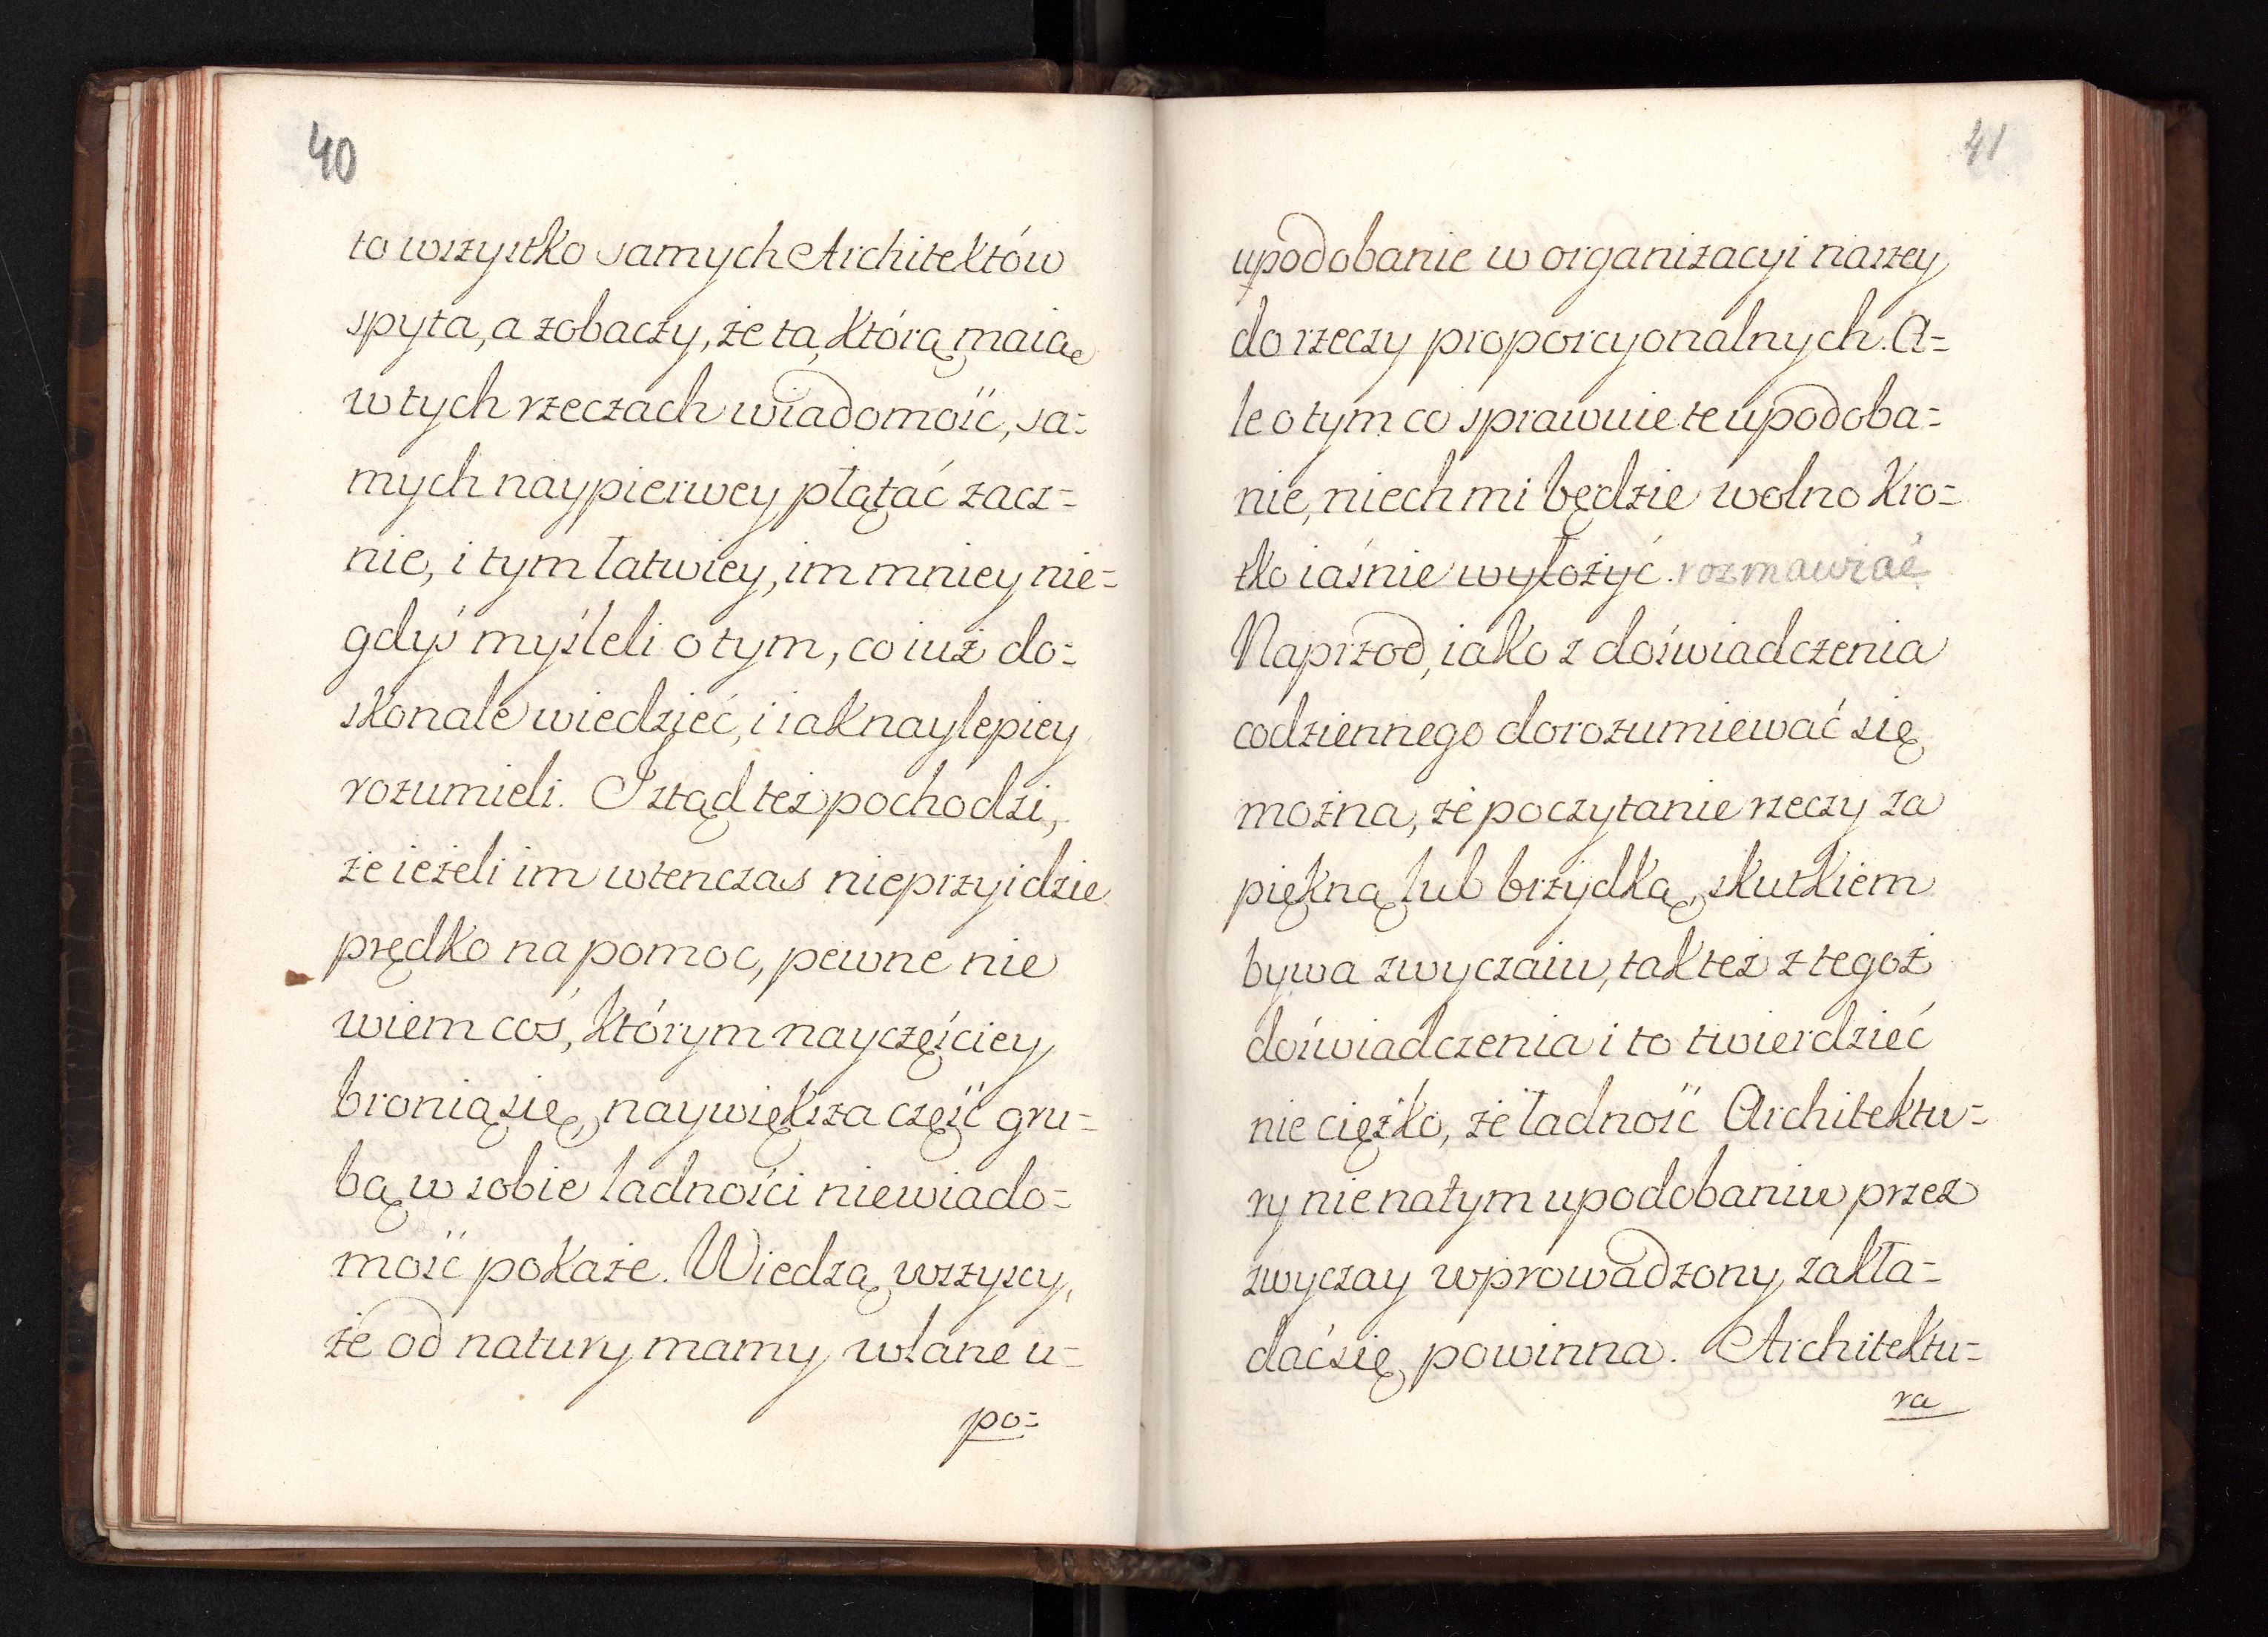 40
to wszystko samych Architektów
spyta, a zobaczy, że ta, którą maią
w tych rzeczach wiadomość, sa=
mych naypierwey plątać zacz=
nie, i tym łatwiey, im mniey nie=
gdyś myśleli o tym, co iuż do=
skonale wiedzieć, i iak naylepiey
rozumieli. I ztąd też pochodzi,
że ieżeli im wtenczas nieprzyidzie
prędko na pomoc, pewne nie
wiem coś, którym nayczęściey
bronią się, naywiększa część gru=
bą w sobie ładności niewiado=
mość pokaże. Wiedzą wszyscy,
że od natury mamy wlane u=
po=
41
upodobanie w organizacyi naszey
do rzeczy proporcyonalnych. A=
le o tym co sprawuie te upodoba=
nie, niech mi będzie wolno kro=
tko iaśnie wyłożyć. rozmawiać
Naprzod, iako z doświadczenia
codziennego dorozumiewać się
można, że poczytanie rzeczy za
piękną lub brzydką, skutkiem
bywa zwyczaiu, tak też z tegoż
doświadczenia i to twierdzieć
nie ciężko, że ładność Architektu=
ry nie na tym upodobaniu przez
zwyczay wprowadzony zakła=
dać się powinna. Architektu=
ra